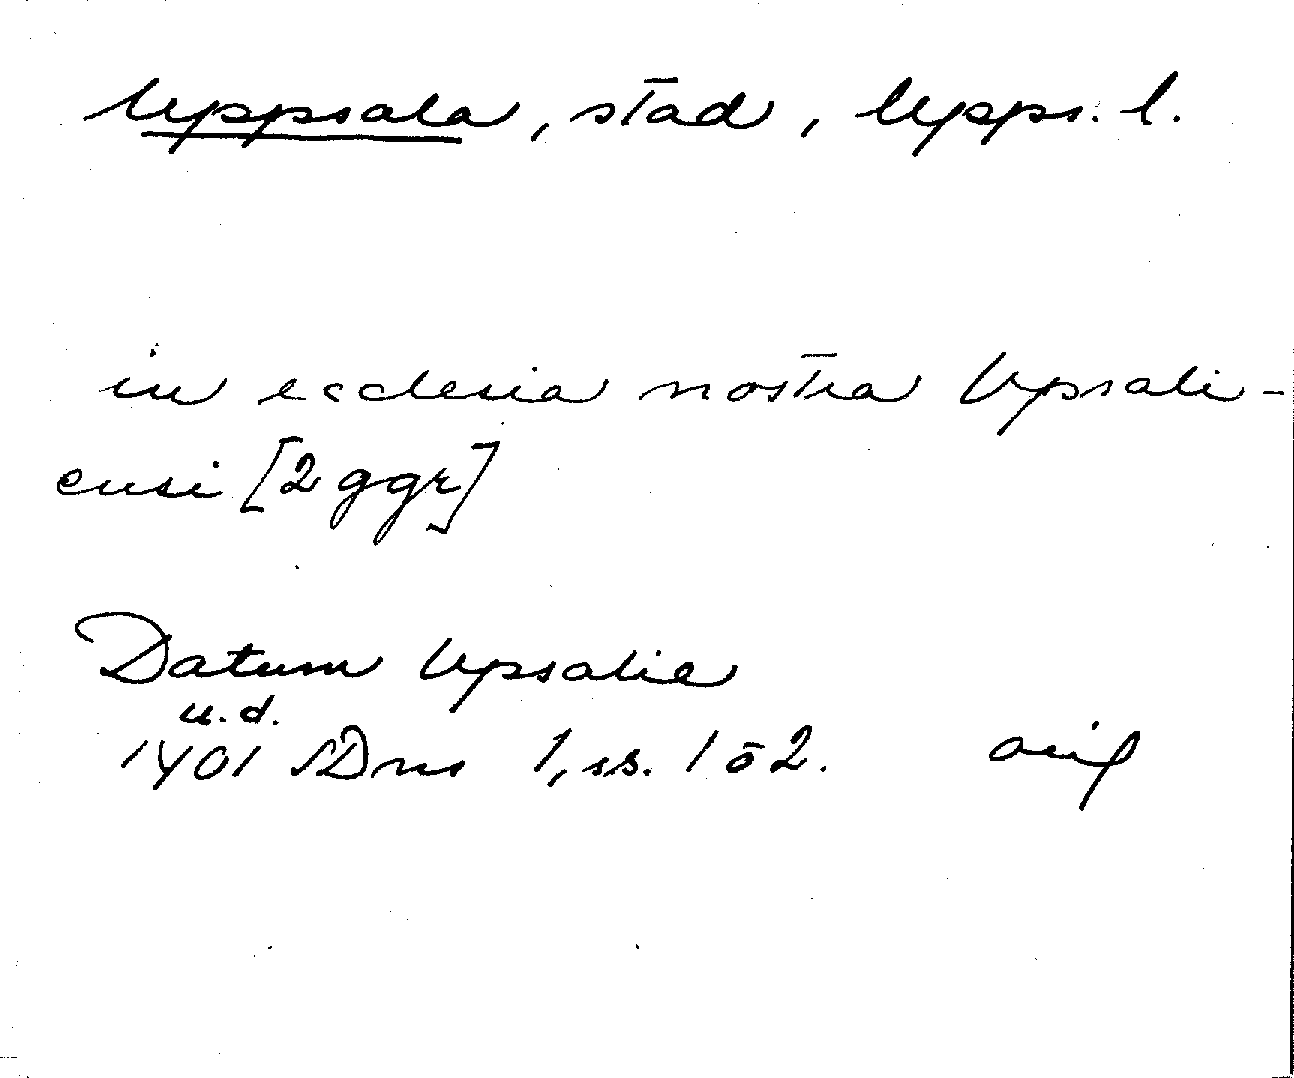 Uppsala, stad, Upps. l.
in ecclesia nostra Vpsali-
ensi [2 ggr]
Datum Vpsalie
u.d.
1401 SDns 1, ss. 1 o 2. orig